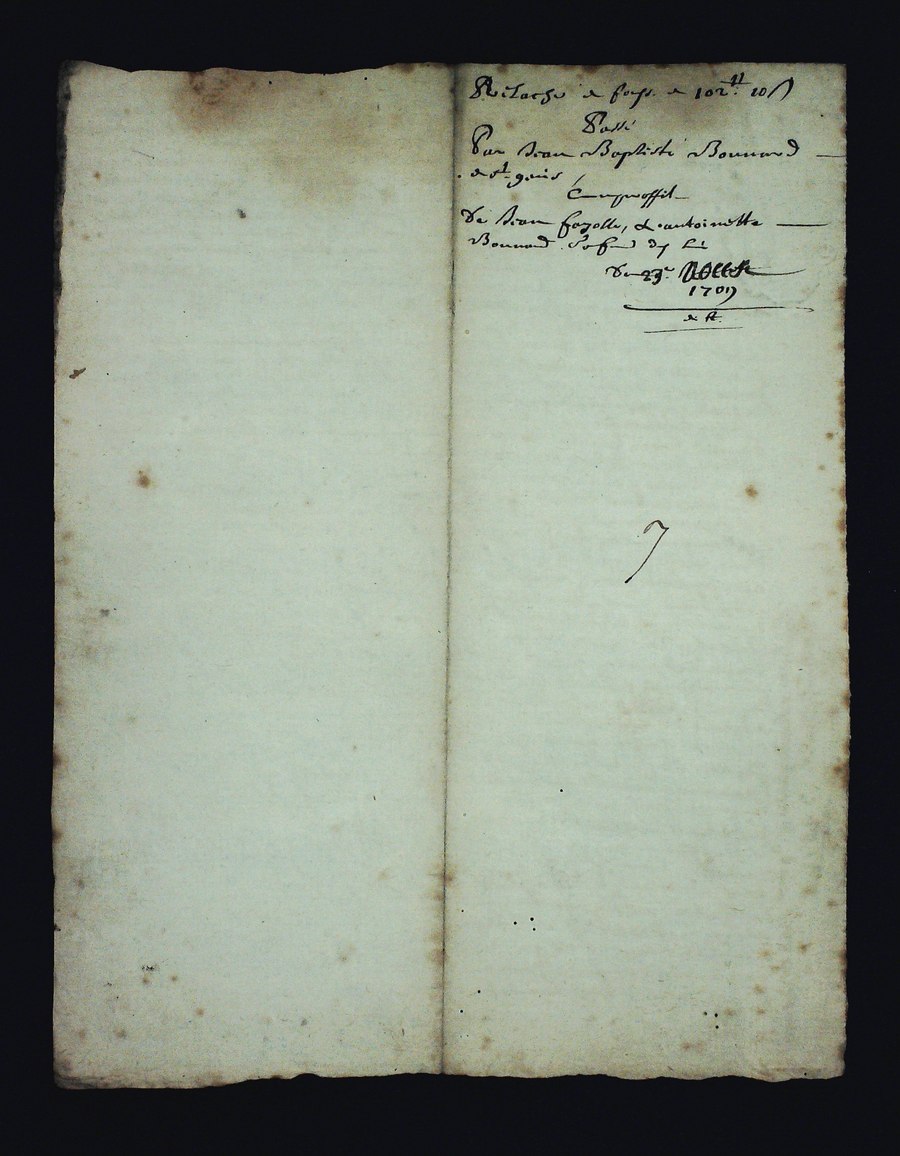 Relache de fons de 102ᵗᵗ 10 s
Passé
Par Jean Baptiste Bonnard
de sᵗ genis
Au proffit
De Jean fayolle, & antoinette
Bonnard sa f
Du 23ᵉ
1709
7